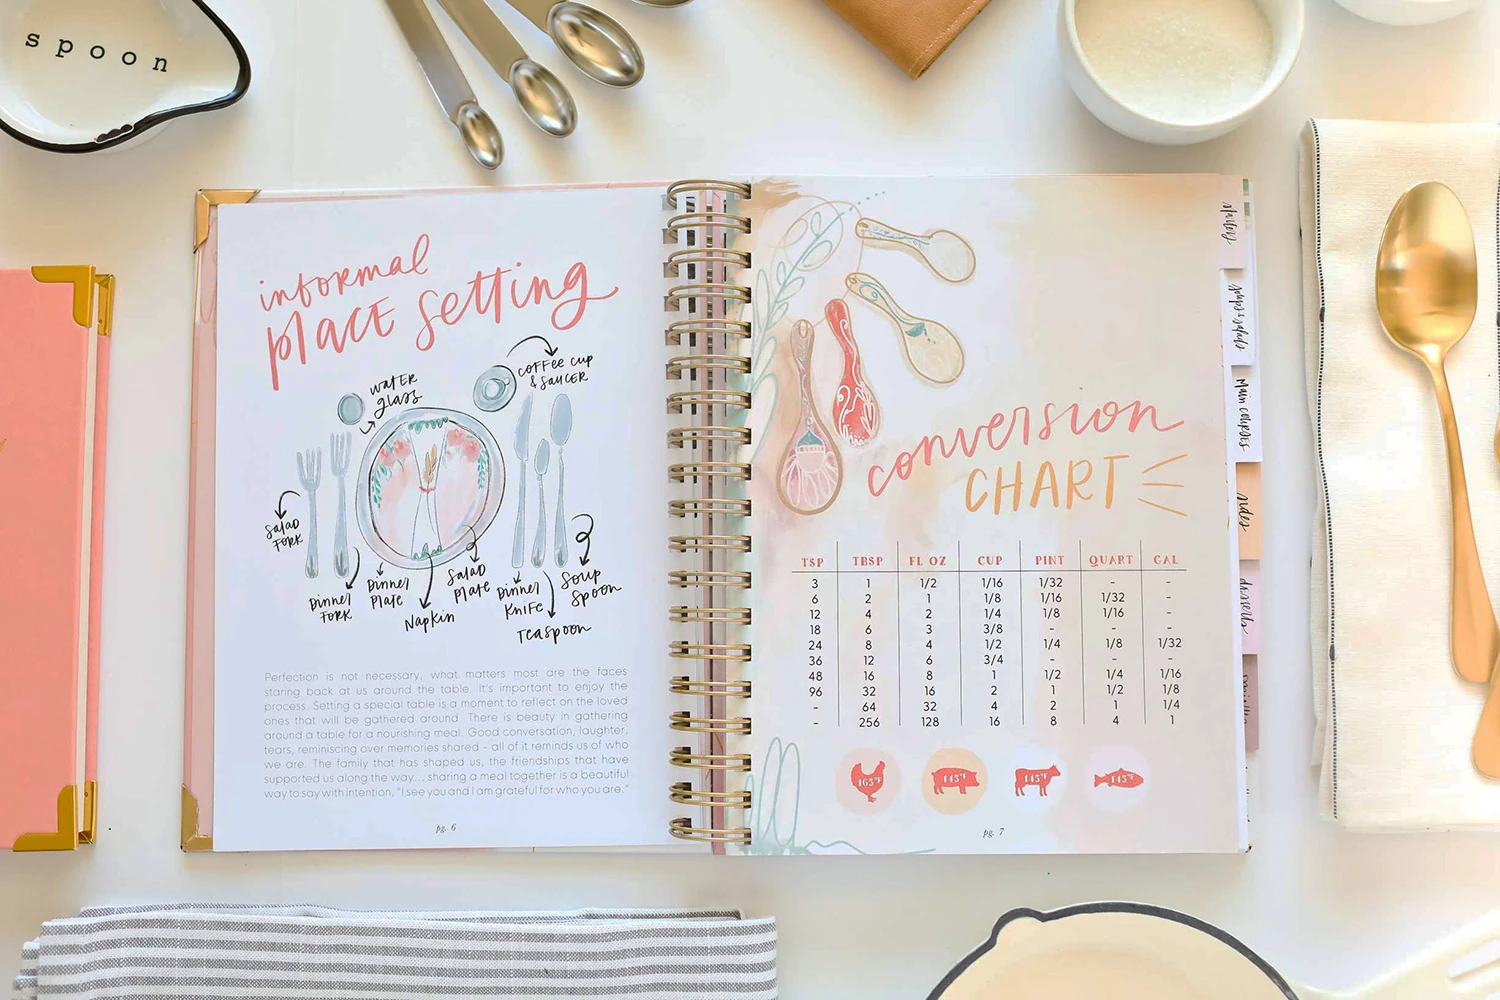 spoon
informal
PLACE SETTING
WATER
glass
COFFEE CUP
& SAUCER
SALAD
FORK
DINNER
FORK
DINNER
PLATE
NAPKIN
SALAD
PLATE
DINNER
KNIFE
TEASPOON
SOUP
SPOON
Perfection is not necessary, what matters most are the faces
staring back at us around the table. It's important to enjoy the
process. Setting a special table is a moment to reflect on the loved
ones that will be gathered around. There is beauty in gathering
around a table for a nourishing meal. Good conversation, laughter,
tears, reminiscing over memories shared - all of it reminds us of who
we are. The family that has shaped us, the friendships that have
supported us along the way... sharing a meal together is a beautiful
way to say with intention, "I see you and I am grateful for who you are."
pg. 6
conversion
CHART
TSP TBSP FL OZ CUP PINT QUART GAL
3 1 1/2 1/16 1/32 - -
6 2 1 1/8 1/16 1/32 -
12 4 2 1/4 1/8 1/16 -
18 6 3 3/8 - - -
24 8 4 1/2 1/4 1/8 1/32
36 12 6 3/4 - - -
48 16 8 1 1/2 1/4 1/16
96 32 16 2 1 1/2 1/8
- 64 32 4 2 1 1/4
- 256 128 16 8 4 1
165°F
145°F
145°F
145°F
pg. 7
soups & salads
MAIN COURSES
sides
desserts